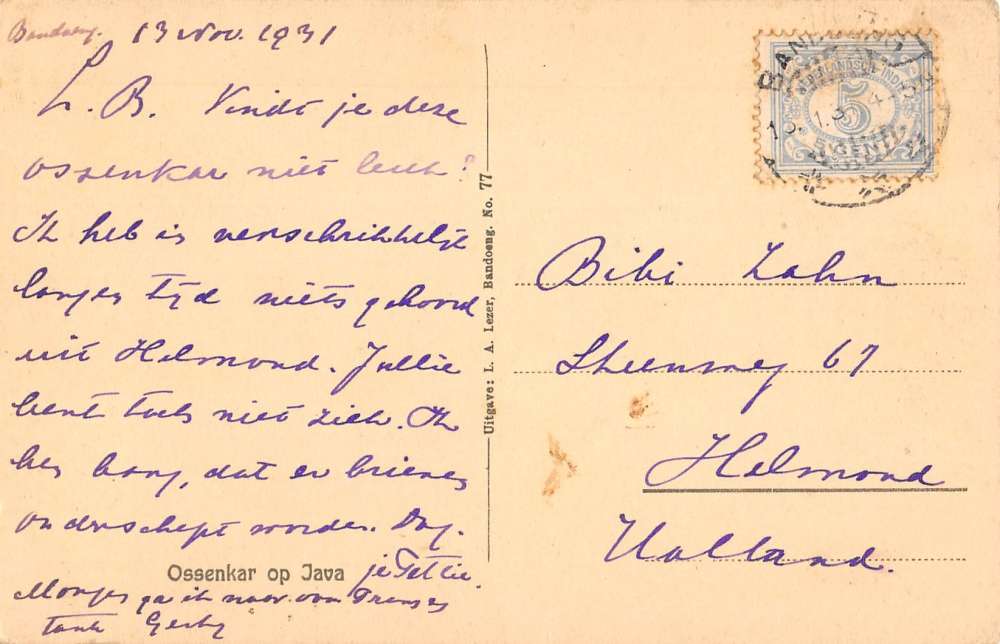 Bandoeng. 13 Nov. 1931
L. B. Vindt je deze
ossenkar niet leuk?
Ik heb in verschrikkelijk
langen tijd niets gehoord
uit Helmond. Jullie
bent toch niet ziek. Ik
ben bang, dat er brieven
onderschept worden. Dag.
je Tettie
Morgen ga ik naar oom Frans en
tante Gerby
Ossenkar op Java
Uitgave: L. A. Lezer, Bandoeng. No. 77
BANDOENG
NEDERLANDSCH-INDIË
5
CENT
Bibi Zahn
Steenweg 67
Helmond
Holland.